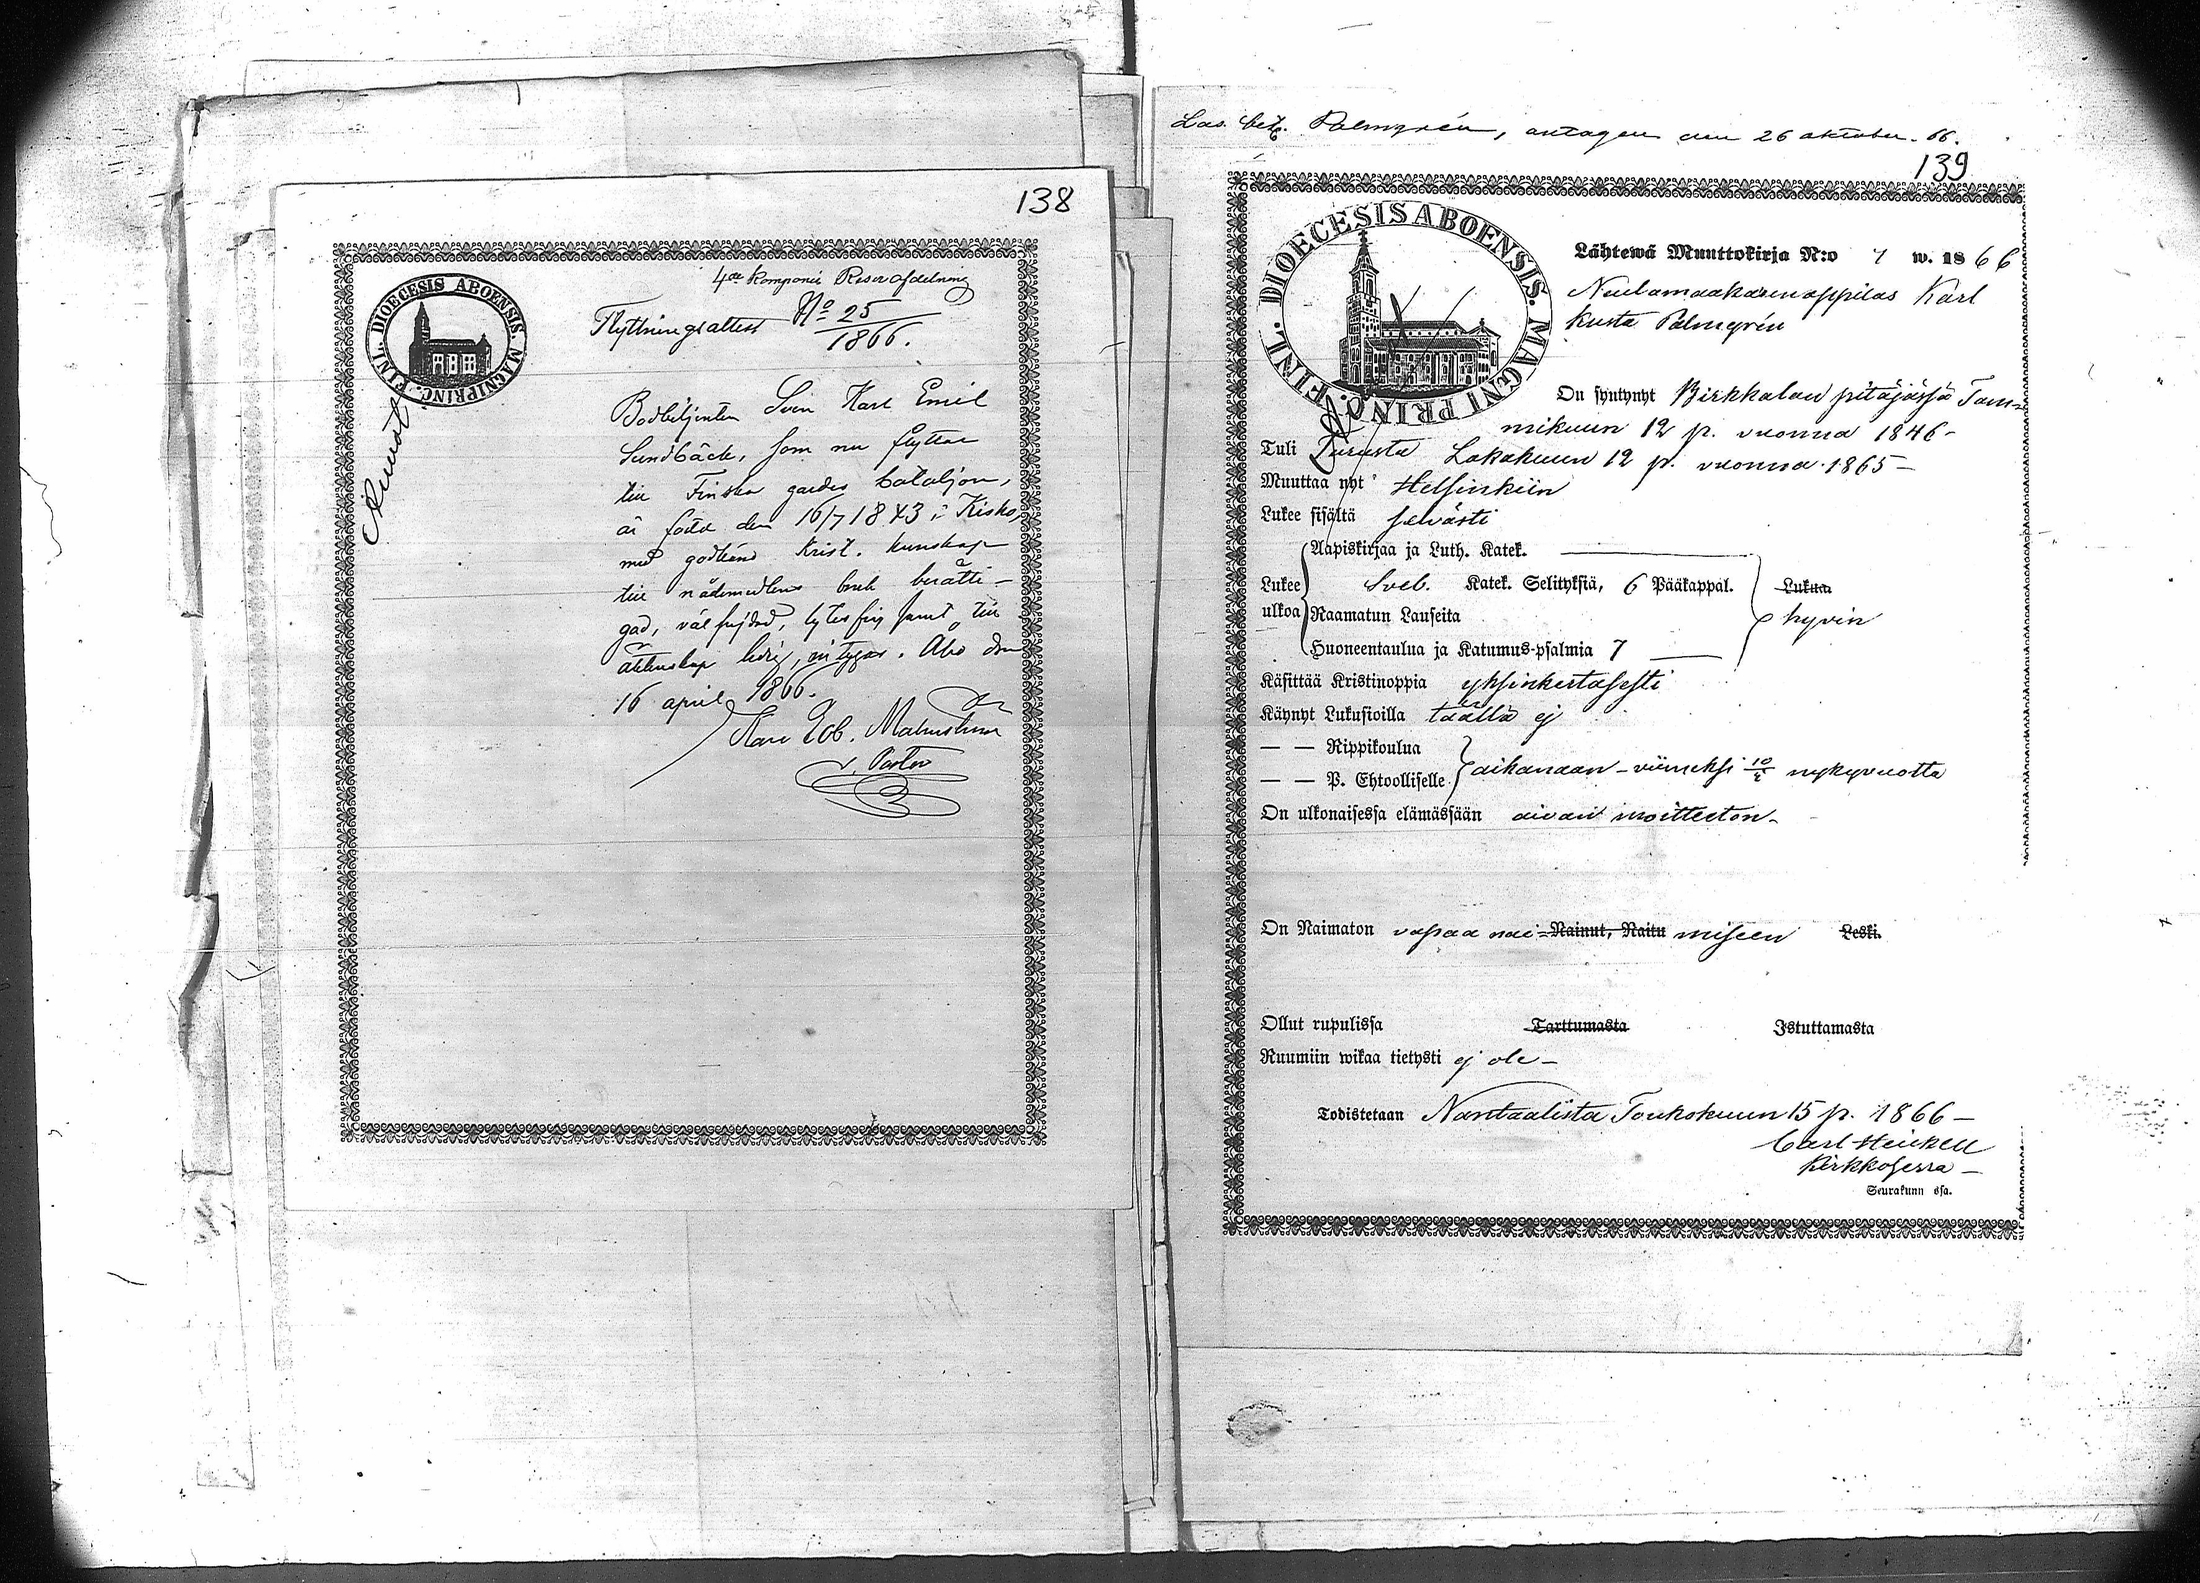 138
4de Kompanie Reserv afdelning
Flyttningsattest No 25
1866.
FINL. DIOECESIS ABOENSIS. MAGNI PRINC.
Sven Karl Emil
Sundbäck, som nu flyttar
till Finska gardes bataljon,
är född den 16/7 1843 i Kisko,
med godkänd Krist. kunskap
till nådemedlens bruk berätti-
gad, väl frejdad, lytesfri samt till
äktenskap ledig, intygas. Åbo den
16 april 1866.
v. Pastor
Palmgrén, antagen den 26 oktober. 66.
139
FINL. DIOECESIS ABOENSIS. MAGNI PRINC.
Lähtewä Muuttokirja N:o 7 w. 1866
Neulamaakarinoppilas Karl
Kusta Palmgrén
On syntynyt Birkkalan pitäjässä Tam-
mikuun 12 p. vuonna 1846-
Tuli Turusta Lokakuun 12 p. vuonna 1865-
Muuttaa nyt Helsinkiin
Lukee sisältä selvästi
Aapiskirjaa ja Luth. Katek.
Lukee Sveb. Katek. Selityksiä, 6 Pääkappal. Lukua
ulkoa Raamatun Lauseita hyvin
Huoneentaulua ja Katumus-psalmia 7
Käsittää Kristinoppia yksinkertasesti
Käynyt Lukusioilla täällä ej
— — Rippikoulua
— — P. Ehtoolliselle aikanaan - viimeksi 10/5 nykyvuotta
On ulkonaisessa elämässään aivan moitteeton-
On Naimaton vapaa nai- Nainut, Naitu miseen Leski.
Ollut rupulissa Tarttumasta Istuttamasta
Ruumiin wikaa tietysti ej ole-
Todistetaan Nantaalista Toukokuun 15 p. 1866-
Carl Heickell
Kirkkoherra-
Seurakunn ssa.